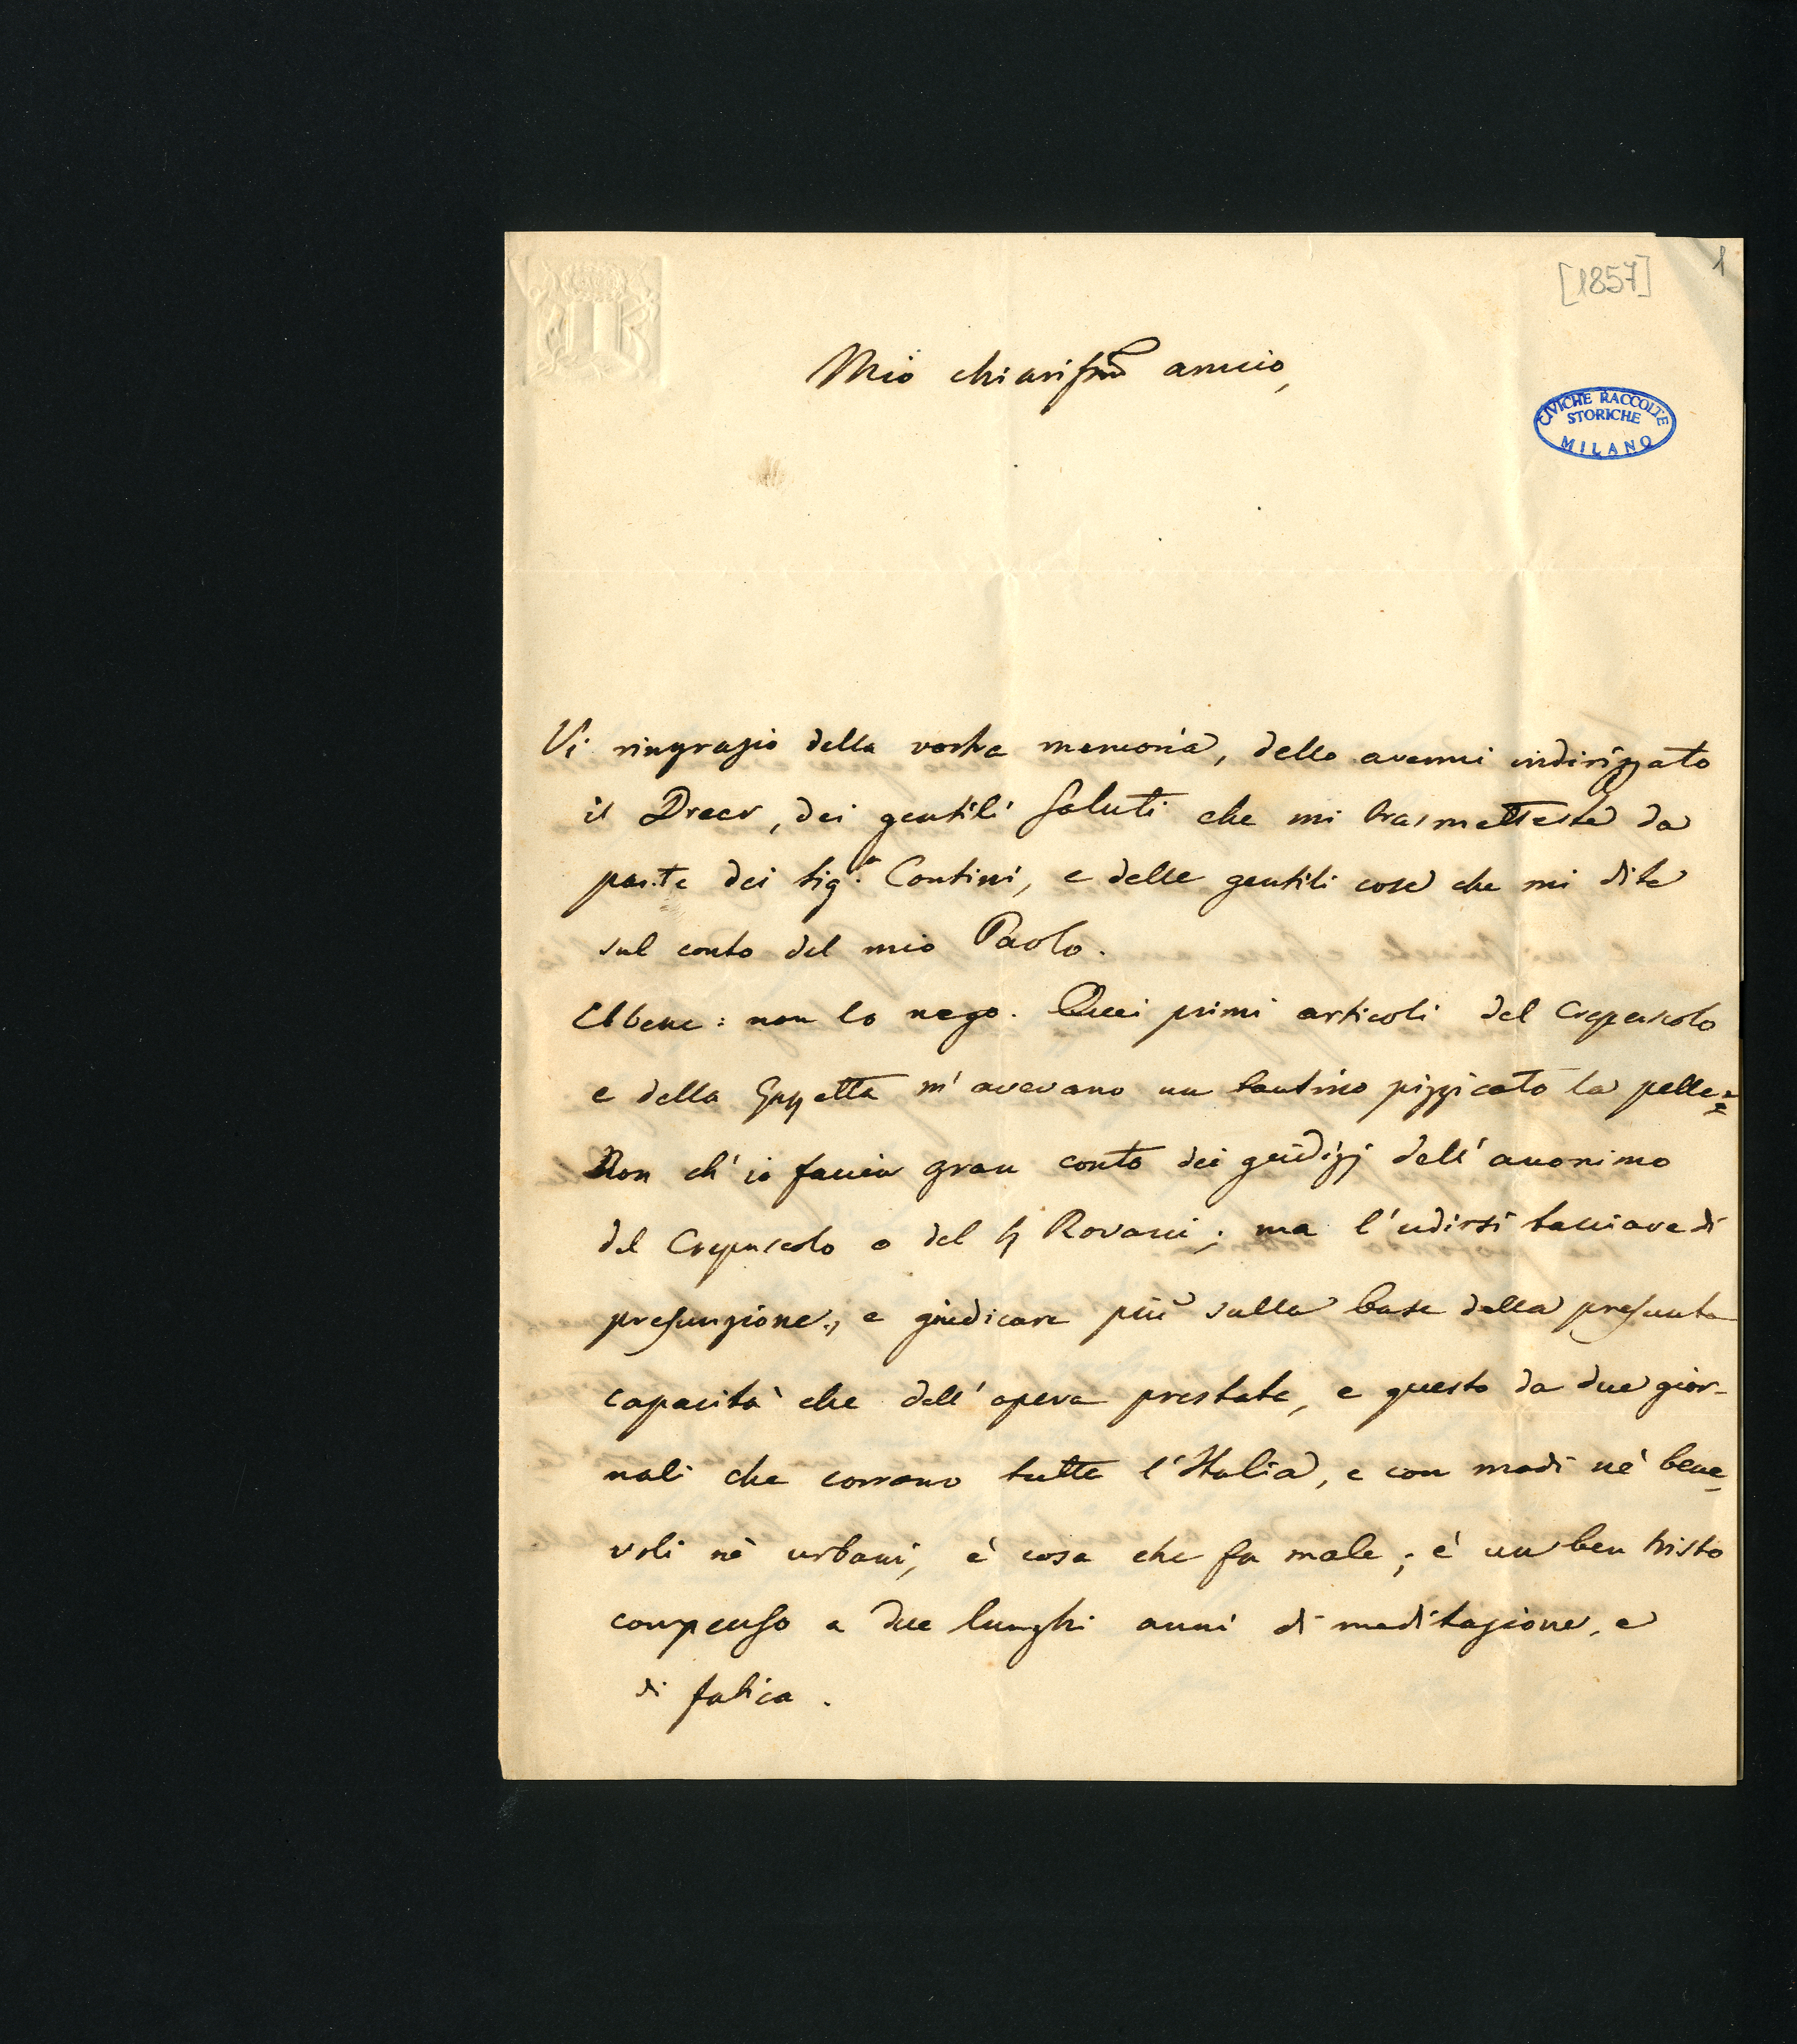 [1857]
1
Mio chiarissmo amico,
CIVICHE RACCOLTE
STORICHE
MILANO
Vi ringrazio della vostra memoria, dello avermi indirizzato
il Dreer, dei gentili saluti che mi trasmetteste da
parte dei sigri Contini, e delle gentili cose che mi dite
sul conto del mio Paolo.
Ebbene: non lo nego. Quei primi articoli del Crepuscolo
e della Gazzetta m'avevano un tantino pizzicato la pelle:
Non ch'io faccia gran conto dei giudizj dell'anonimo
del Crepuscolo o del Rovani; ma l'udirsi tacciare di
presunzione, e giudicare più sulla base della presunta
capacità che dell'opera prestata, e questo da due gior-
nali che corrono tutta l'Italia, e con modi nè bene-
voli nè urbani, è cosa che fa male; è un ben tristo
compenso a due lunghi anni di meditazione, e
di fatica.